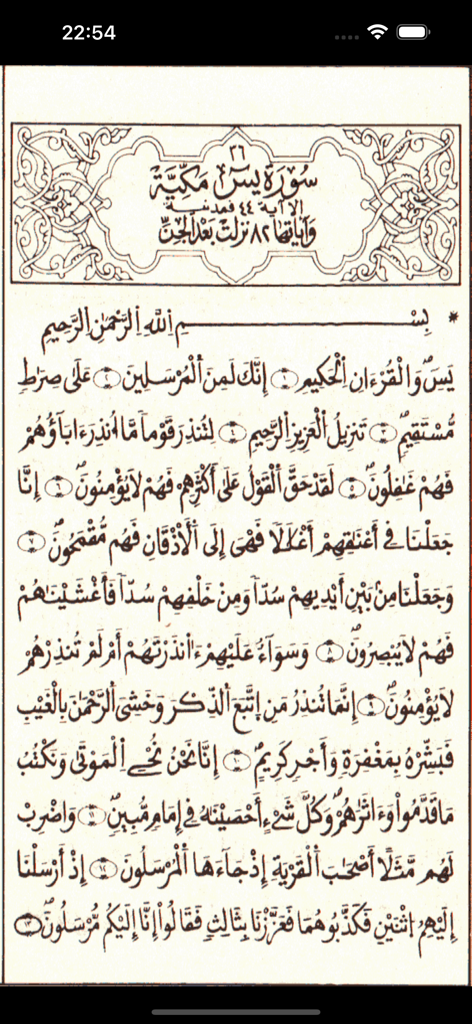 22:54
٣٦
سُورَة يسٓ مَكِيَّة
إلا آية ٤٤ فمدنية
وَآياتها ٨٢ نزلت بَعْدَ الجِنّ
* بِسْمِ اِللَّهِ اِلرَّحْمَٰنِ اِلرَّحِيمِ
يَسٓ وَالْقُرْءَانِ اِلْحَكِيمِ ١ إِنَّكَ لَمِنَ اَلْمُرْسَلِينَ ٢ عَلَىٰ صِرَٰطٍ
مُّسْتَقِيمٍ ٣ تَنزِيلُ اُلْعَزِيزِ اِلرَّحِيمِ ٤ لِتُنذِرَ قَوْماً مَّا أُنذِرَ ءَابَآؤُهُمْ
فَهُمْ غَٰفِلُونَ ٥ لَقَدْ حَقَّ اَلْقَوْلُ عَلَىٰ أَكْثَرِهِمْ فَهُمْ لَا يُؤْمِنُونَ ٦ إِنَّا
جَعَلْنَا فِےٓ أَعْنَٰقِهِمْ أَغْلَٰلاً فَهِيَ إِلَى اَلْأَذْقَانِ فَهُم مُّقْمَحُونَ ٧
وَجَعَلْنَا مِنۢ بَيْنِ أَيْدِيهِمْ سُدّاً وَمِنْ خَلْفِهِمْ سُدّاً فَأَغْشَيْنَٰهُمْ
فَهُمْ لَا يُبْصِرُونَ ٨ وَسَوَآءٌ عَلَيْهِمْ ءَآنذَرْتَهُمْ أَمْ لَمْ تُنذِرْهُمْ
لَا يُؤْمِنُونَ ٩ إِنَّمَا تُنذِرُ مَنِ اِتَّبَعَ اَلذِّكْرَ وَخَشِيَ اَلرَّحْمَٰنَ بِالْغَيْبِ
فَبَشِّرْهُ بِمَغْفِرَةٍ وَأَجْرٍ كَرِيمٍ ١٠ إِنَّا نَحْنُ نُحْيِ اِلْمَوْتَىٰ وَنَكْتُبُ
مَا قَدَّمُواْ وَءَاثَٰرَهُمْ وَكُلَّ شَےْءٍ أَحْصَيْنَٰهُ فِےٓ إِمَامٍ مُّبِينٍ ١١ وَاضْرِبْ
لَهُم مَّثَلاً أَصْحَٰبَ اَلْقَرْيَةِ إِذْ جَآءَهَا اَلْمُرْسَلُونَ ١٢ إِذْ أَرْسَلْنَآ
إِلَيْهِمُ اُثْنَيْنِ فَكَذَّبُوهُمَا فَعَزَّزْنَا بِثَالِثٍ فَقَالُوٓاْ إِنَّآ إِلَيْكُم مُّرْسَلُونَ ١٣